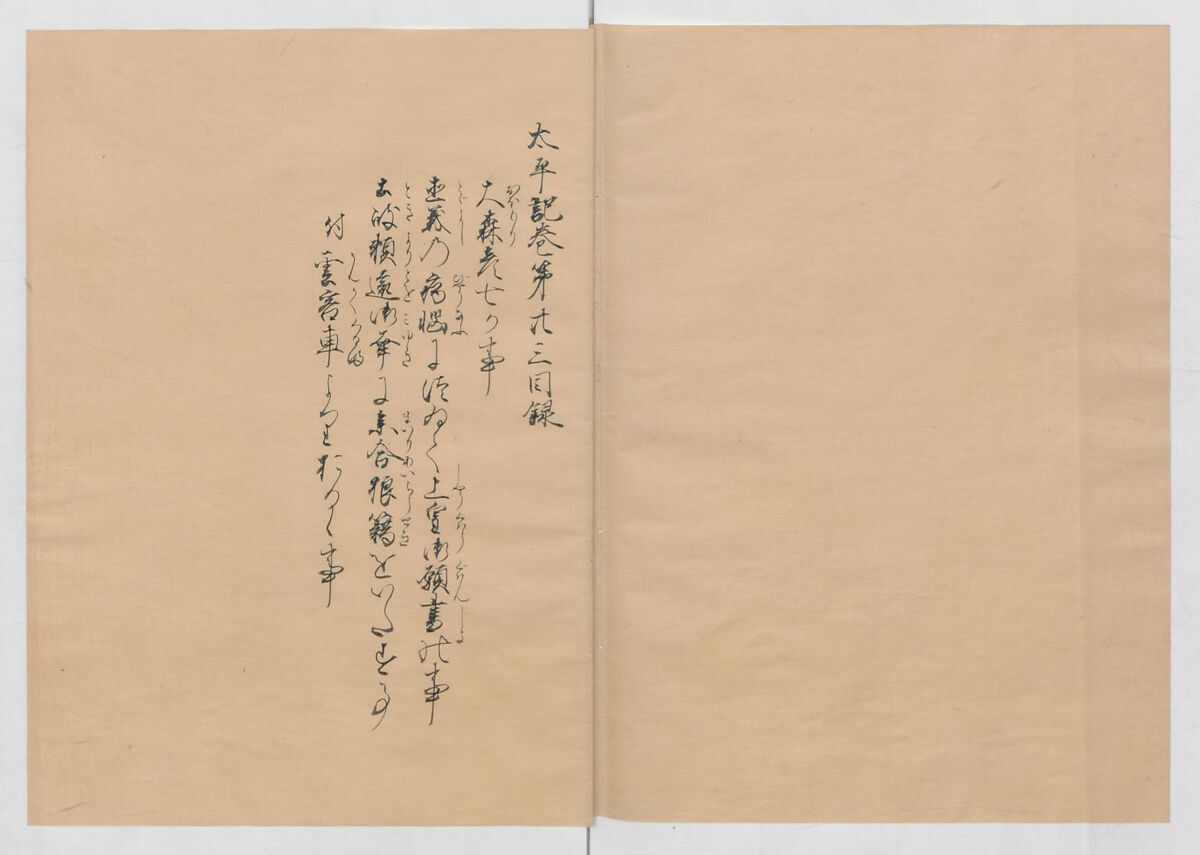 太平記巻第廿三目録
大森彦七か事
直義の病悩によつて上皇御願書の事
土岐頼遠御幸に参合狼藉をいたす事
付雲客車よりおるゝ事